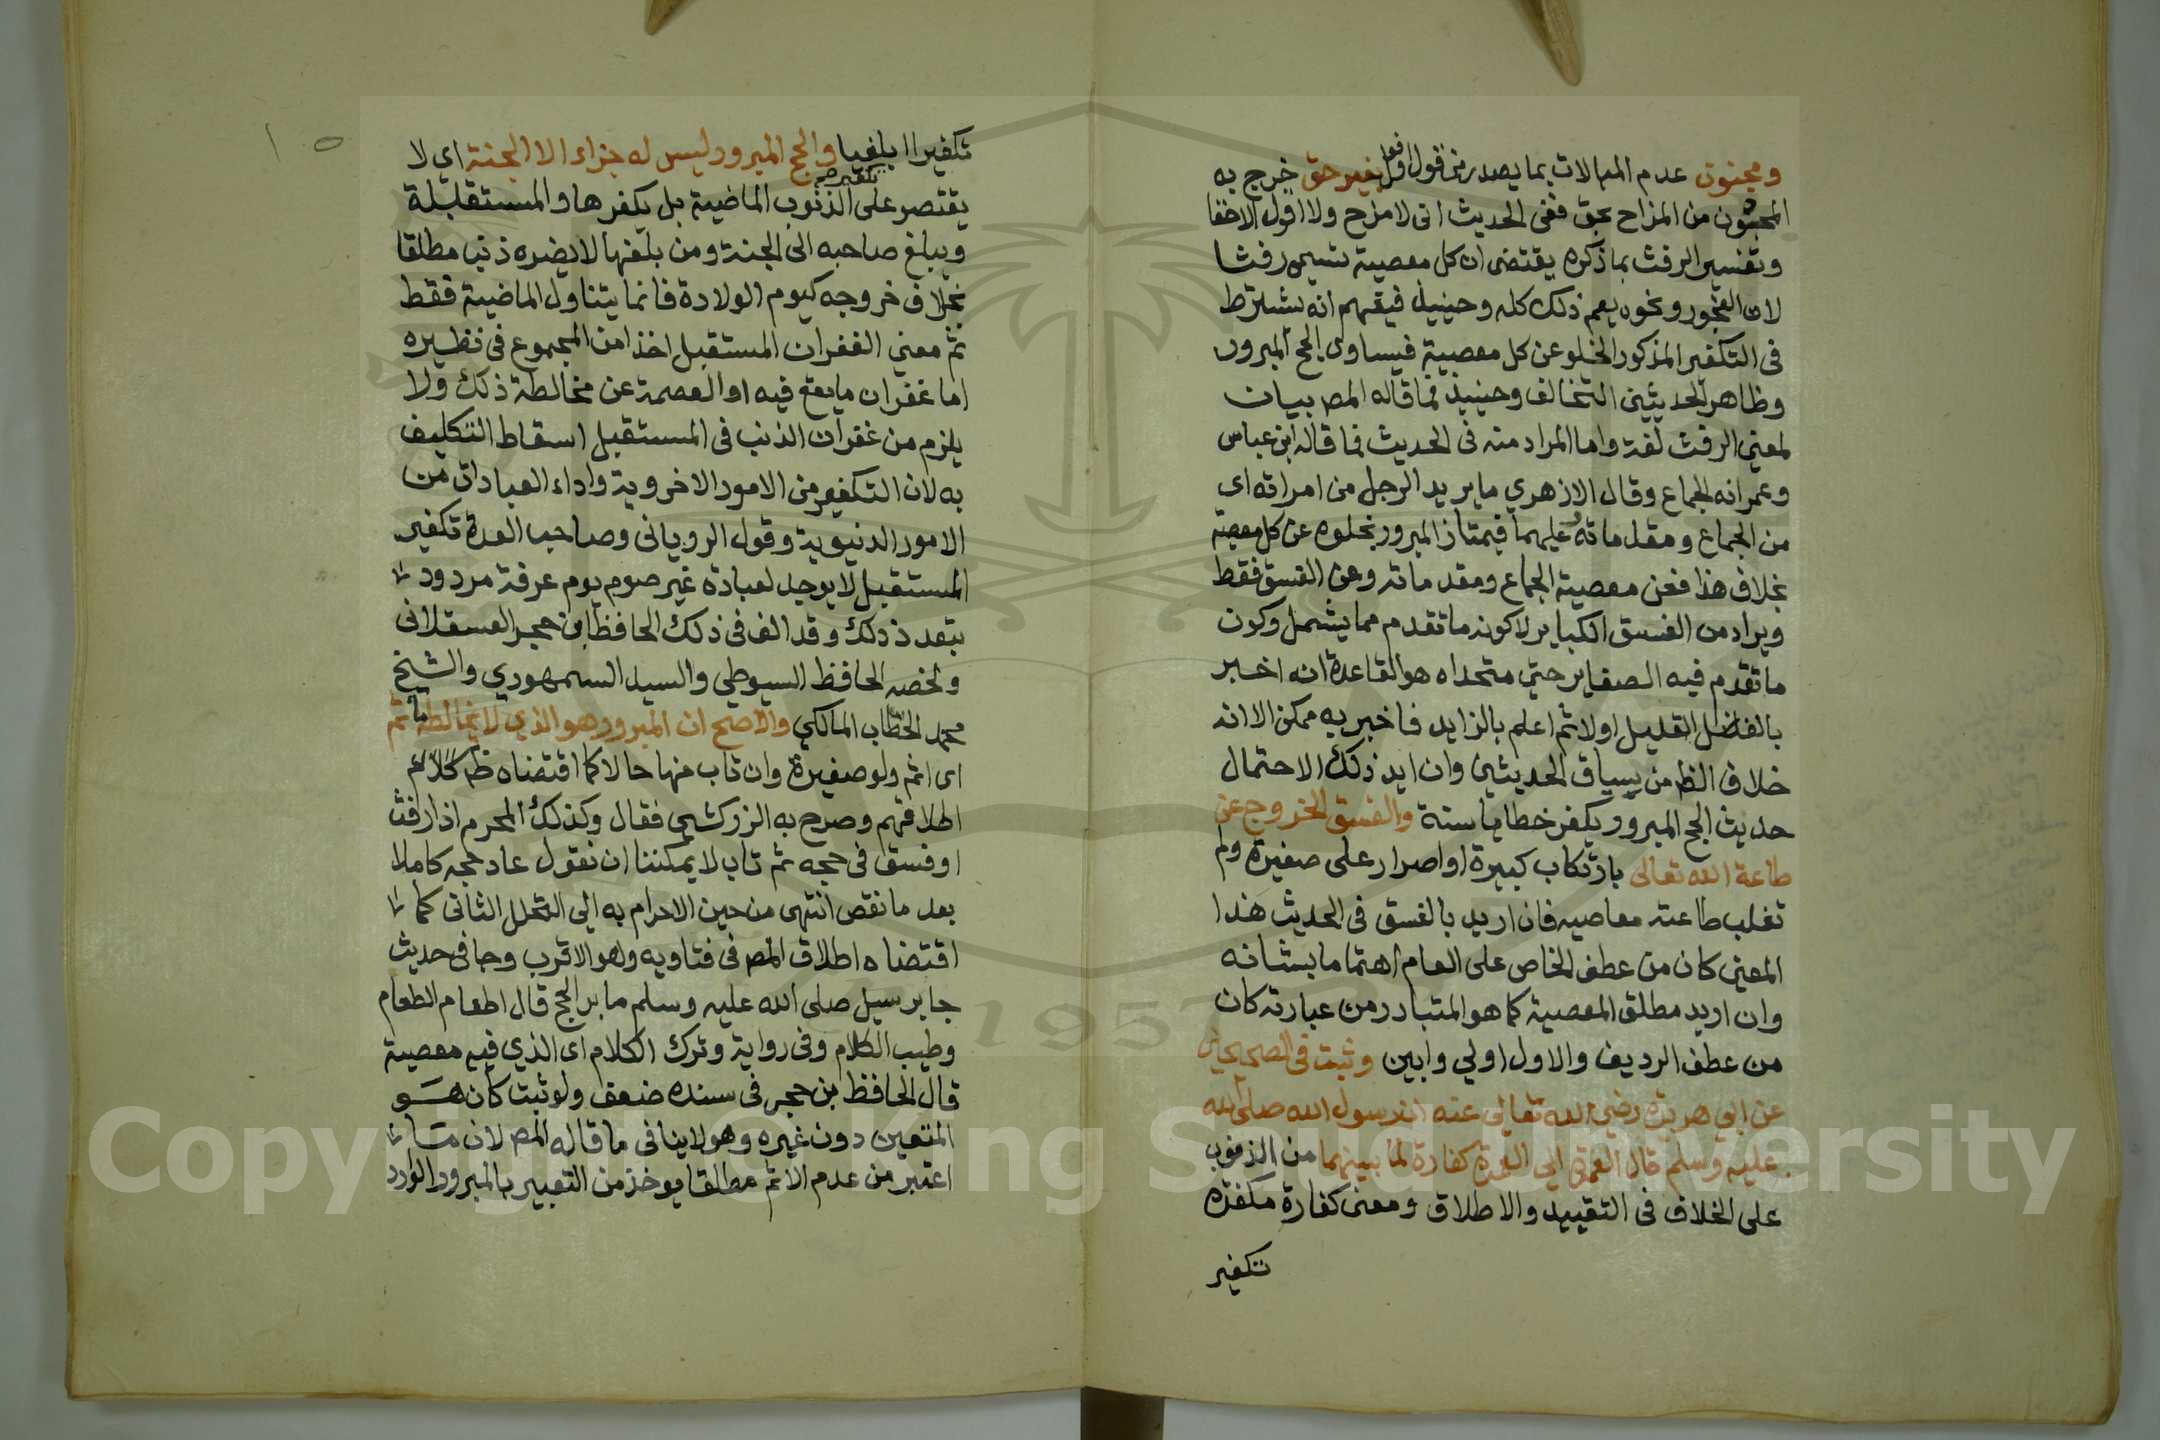 ومجنون عدم المبالات بما يصدر من قول او فعل بغير حق خرج به
المجون من المزاح بحق ففى الحديث انى لامزح ولا اقول الاحقا
وتفسير الرفث بما ذكره يقتضى ان كل معصية تسمى رفثا
لان الفجور ونحوه يعم ذلك كله وحينيذ فيفهم انه يشترط
فى التكفير المذكور الخلو عن كل معصية فيساوى الحج المبرور
وظاهر الحديثين التخالف وحينيذ فما قاله المص بيان
لمعنى الرفث لغة واما المراد منه فى الحديث فما قاله ابن عباس
وعمر انه الجماع وقال الازهري ما يريد الرجل من امراته اى
من الجماع ومقدماته وعليهما فيمتاز المبرور بخلوه عن كل معصية
بخلاف هذا فعن معصية الجماع ومقدماته وعن الفسق فقط
ويراد من الفسق الكباير لا كونه ما تقدم مما يشمل وكون
ما تقدم فيه الصغاير حتى متحداه هو القاعدة انه اخبر
بالفاضل القليل اولا ثم اعلم بالزايد فاخبر به ممكن الا انه
خلاف الظ من سياق الحديثين وان ايد ذلك الاحتمال
حديث الحج المبرور يكفر خطايا سنة والفسق الخروج عن
طاعة الله تعالى بارتكاب كبيرة او اصرار على صغيرة ولم
تغلب طاعته معاصيه فان اريد بالفسق فى الحديث هذا
المعنى كان من عطف الخاص على العام اهتماما بشانه
وان اريد مطلق المعصية كما هو المتبادر من عبارته كان
من عطف الرديف والاول اولي وابين وثبت فى الصحيحين
عن ابي هريرة رضي الله تعالى عنه ان رسول الله صلى الله
عليه وسلم قال العمرة الي العمرة كفارة لما بينهما من الذنوب
على الخلاف فى التقييد والاطلاق ومعنى كفارة مكفرة
تكفير
١٠
تكفيرا بليغا والحج المبرور ليس له جزاء الا الجنة اي لا
يقتصر تكفيره على الذنوب الماضية بل يكفرها والمستقبلة
ويبلغ صاحبه الى الجنة ومن بلغها لا يضره ذنب مطلقا
بخلاف خروجه كيوم الولادة فانما يتناول الماضية فقط
ثم معني الغفران المستقبل اخذا من المجموع فى نظيره
اما غفران ما يقع فيه او العصمة عن مخالطة ذلك ولا
يلزم من غفران الذنب فى المستقبل اسقاط التكليف
به لان التكفير من الامور الاخروية واداء العبادات من
الامور الدنيوية وقول الرويانى وصاحب العدة تكفير
المستقبل لا يوجد لعبادة غير صوم يوم عرفة مردود
بتعدد ذلك وقد الف فى ذلك الحافظ ابن حجر العسقلانى
ولخصه الحافظ السيوطي والسيد السمهودي والشيخ
محمد الحطاب المالكي والاصح ان المبرور هو الذي لا يخالطه ماثم
اى اثم ولو صغيرة وان تاب منها حالا كما اقتضاه ظ كلام
اطلاقهم وصرح به الزركشي فقال وكذلك المحرم اذا رفث
او فسق فى حجه ثم تاب لا يمكننا ان نقول عاد حجه كاملا
بعد ما نقص انتهى من حين الاحرام به الي التحلل الثانى كما
اقتضاه اطلاق المص فى فتاويه وهو الاقرب وجا فى حديث
جابر سيل صلى الله عليه وسلم ما بر الحج قال اطعام الطعام
وطيب الكلام وفى رواية وترك الكلام اى الذي فيه معصية
قال الحافظ بن حجر فى سنده ضعف ولو ثبت كان هو
المتعين دون غيره وهو لا ينافى ما قاله المص لان ما
اعتبر من عدم الاثم مطلقا يوخذ من التعبير بالمبرور الوارد
Copyright © King Saud University
1957